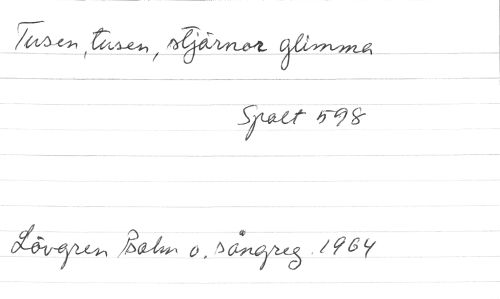 Tusen, tusen, stjärnor glimma
Spalt 598
Lövgren Psalm o. sångreg. 1964